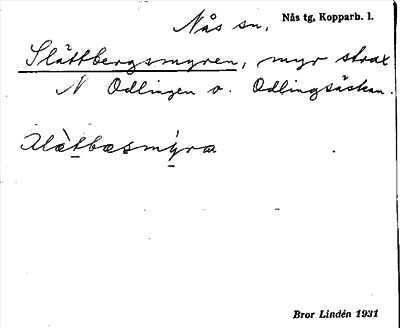 Nås sn. Nås tg, Kopparb. l.
Slättbergsmyren, myr strax
N Odlingen o. Odlingsåskan.
Bror Lindén 1931